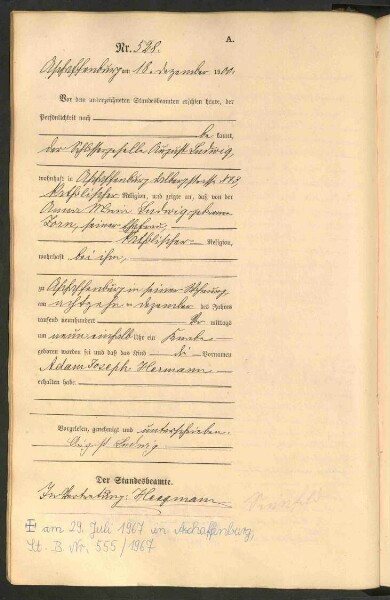 A.
Nr. 528.
Aschaffenburg am 18. Dezember 1900.
Vor dem unterzeichneten Standesbeamten erschien heute, der
Persönlichkeit nach
be kannt,
der Schlossergeselle August Ludwig,
wohnhaft in Aschaffenburg
katholischer Religion, und zeigte an, daß von der
Anna Ludwig geborene
Zorn, seiner Ehefrau,
katholischer Religion,
wohnhaft bei ihm,
in Aschaffenburg in seiner Wohnung
am achtzehnten Dezember des Jahres
tausend neunhundert Vor mittags
um neun einhalb Uhr ein Knabe
geboren worden sei und daß das Kind die Vornamen
Adam Joseph Hermann
erhalten habe.
Vorgelesen, genehmigt und unterschrieben.
August Ludwig
Der Standesbeamte.
In Vertretung:
am 29. Juli 1967 in Aschaffenburg,
St. B. Nr. 555/1967